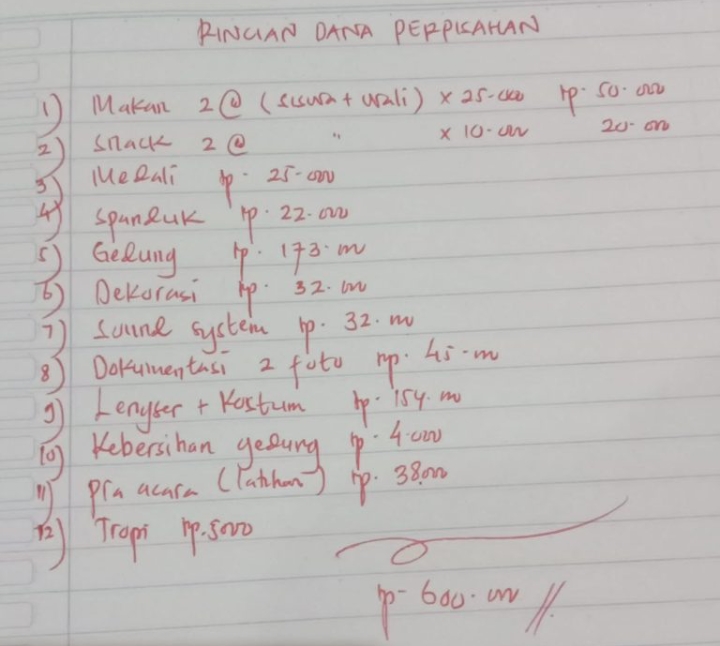 RINCIAN DANA PERPISAHAN
1) Makan 2 @ (siswa + wali) x 25.000 Rp. 50.000
2) Snack 2 @ " x 10.000 20.000
3) Medali Rp. 25.000
4) Spanduk Rp. 22.000
5) Gedung Rp. 173.000
6) Dekorasi Rp. 32.000
7) Sound system Rp. 32.000
8) Dokumentasi 2 foto Rp. 45.000
9) Lengser + Kostum Rp. 154.000
10) Kebersihan gedung Rp. 4.000
11) Pra acara (latihan) Rp. 38.000
12) Tropi Rp. 5000
Rp 600.000 //